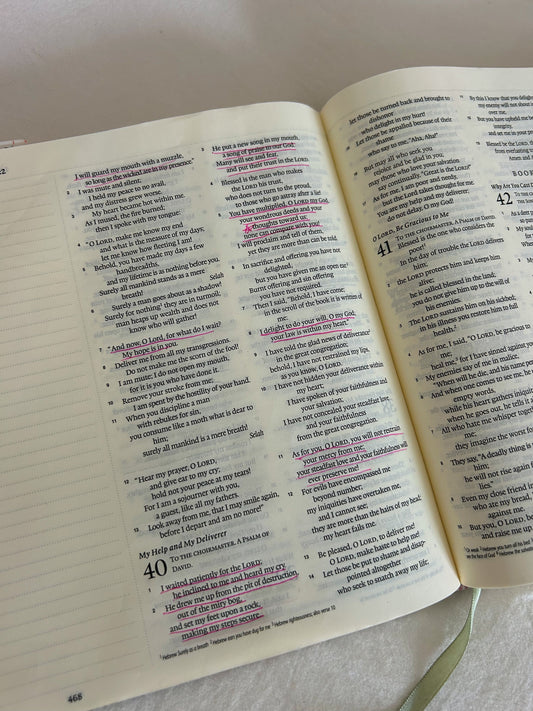 I will guard my mouth with a muzzle,
so long as the wicked are in my presence."
2 I was mute and silent;
I held my peace to no avail,
and my distress grew worse.
3 My heart became hot within me.
As I mused, the fire burned;
then I spoke with my tongue:
4 "O LORD, make me know my end
and what is the measure of my days;
let me know how fleeting I am!
5 Behold, you have made my days a few
handbreadths,
and my lifetime is as nothing before you.
Surely all mankind stands as a mere
breath! Selah
6 Surely a man goes about as a shadow!
Surely for nothing they are in turmoil;
man heaps up wealth and does not
know who will gather!
7 "And now, O Lord, for what do I wait?
My hope is in you.
8 Deliver me from all my transgressions.
Do not make me the scorn of the fool!
9 I am mute; I do not open my mouth,
for it is you who have done it.
10 Remove your stroke from me;
I am spent by the hostility of your hand.
11 When you discipline a man
with rebukes for sin,
you consume like a moth what is dear to
him;
surely all mankind is a mere breath!
Selah
12 "Hear my prayer, O LORD,
and give ear to my cry;
hold not your peace at my tears!
For I am a sojourner with you,
a guest, like all my fathers.
13 Look away from me, that I may smile again,
before I depart and am no more!"
My Help and My Deliverer
40 TO THE CHOIRMASTER. A PSALM OF
DAVID.
1 I waited patiently for the LORD;
he inclined to me and heard my cry.
2 He drew me up from the pit of destruction,
out of the miry bog,
and set my feet upon a rock,
making my steps secure.
3 He put a new song in my mouth,
a song of praise to our God.
Many will see and fear,
and put their trust in the LORD.
4 Blessed is the man who makes
the LORD his trust,
who does not turn to the proud,
to those who go astray after a lie!
5 You have multiplied, O LORD my God,
your wondrous deeds and your
thoughts toward us;
none can compare with you!
I will proclaim and tell of them,
yet they are more than can be told.
6 In sacrifice and offering you have not
delighted,
but you have given me an open ear.
Burnt offering and sin offering
you have not required.
7 Then I said, "Behold, I have come;
in the scroll of the book it is written of
me:
8 I delight to do your will, O my God;
your law is within my heart."
9 I have told the glad news of deliverance
in the great congregation;
behold, I have not restrained my lips,
as you know, O LORD.
10 I have not hidden your deliverance within
my heart;
I have spoken of your faithfulness and
your salvation;
I have not concealed your steadfast love
and your faithfulness
from the great congregation.
11 As for you, O LORD, you will not restrain
your mercy from me;
your steadfast love and your faithfulness will
ever preserve me!
12 For evils have encompassed me
beyond number;
my iniquities have overtaken me,
and I cannot see;
they are more than the hairs of my head;
my heart fails me.
13 Be pleased, O LORD, to deliver me!
O LORD, make haste to help me!
14 Let those be put to shame and disap-
pointed altogether
who seek to snatch away my life;
1 Hebrew Surely as a breath 2 Hebrew ears you have dug for me 3 Hebrew righteousness; also verse 10
468
let those be turned back and brought to
dishonor
who delight in my hurt!
15 Let those be appalled because of their
shame
who say to me, "Aha, Aha!"
16 But may all who seek you
rejoice and be glad in you;
may those who love your salvation
say continually, "Great is the LORD!"
17 As for me, I am poor and needy,
but the Lord takes thought for me.
You are my help and my deliverer;
do not delay, O my God!
O LORD, Be Gracious to Me
41 TO THE CHOIRMASTER. A PSALM OF DAVID.
1 Blessed is the one who considers the
poor!
In the day of trouble the LORD delivers
him;
2 the LORD protects him and keeps him
alive;
he is called blessed in the land;
you do not give him up to the will of
his enemies.
3 The LORD sustains him on his sickbed;
in his illness you restore him to full
health.
4 As for me, I said, "O LORD, be gracious to
me;
heal me, for I have sinned against you!"
5 My enemies say of me in malice,
"When will he die, and his name perish?"
6 And when one comes to see me, he utters
empty words,
while his heart gathers iniquity;
when he goes out, he tells it
7 All who hate me whisper together
me;
they imagine the worst for
8 They say, "A deadly thing is
him;
he will not rise again
9 Even my close friend in
who ate my bread,
against me.
10 But you, O LORD,
and raise me up,
11 By this I know that you delight
my enemy will not shout in
over me.
12 But you have upheld me because
integrity,
and set me in your presence
13 Blessed be the LORD,
from everlasting to
Amen and
BOOK
Why Are You Cast
42